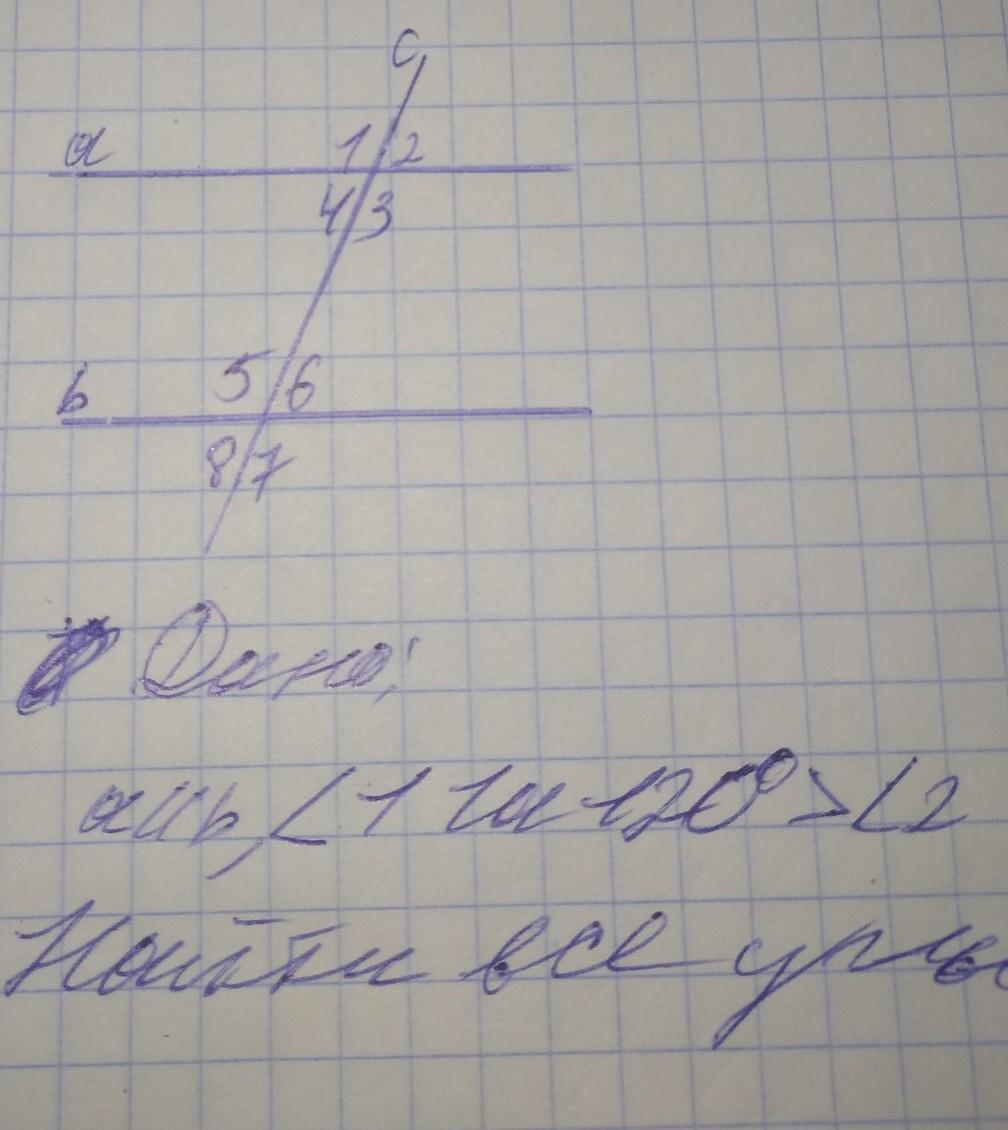 c
a 1 2
4 3
b 5 6
8 7
Дано:
a॥b, ∠1 на 120° > ∠2
Найти все углы